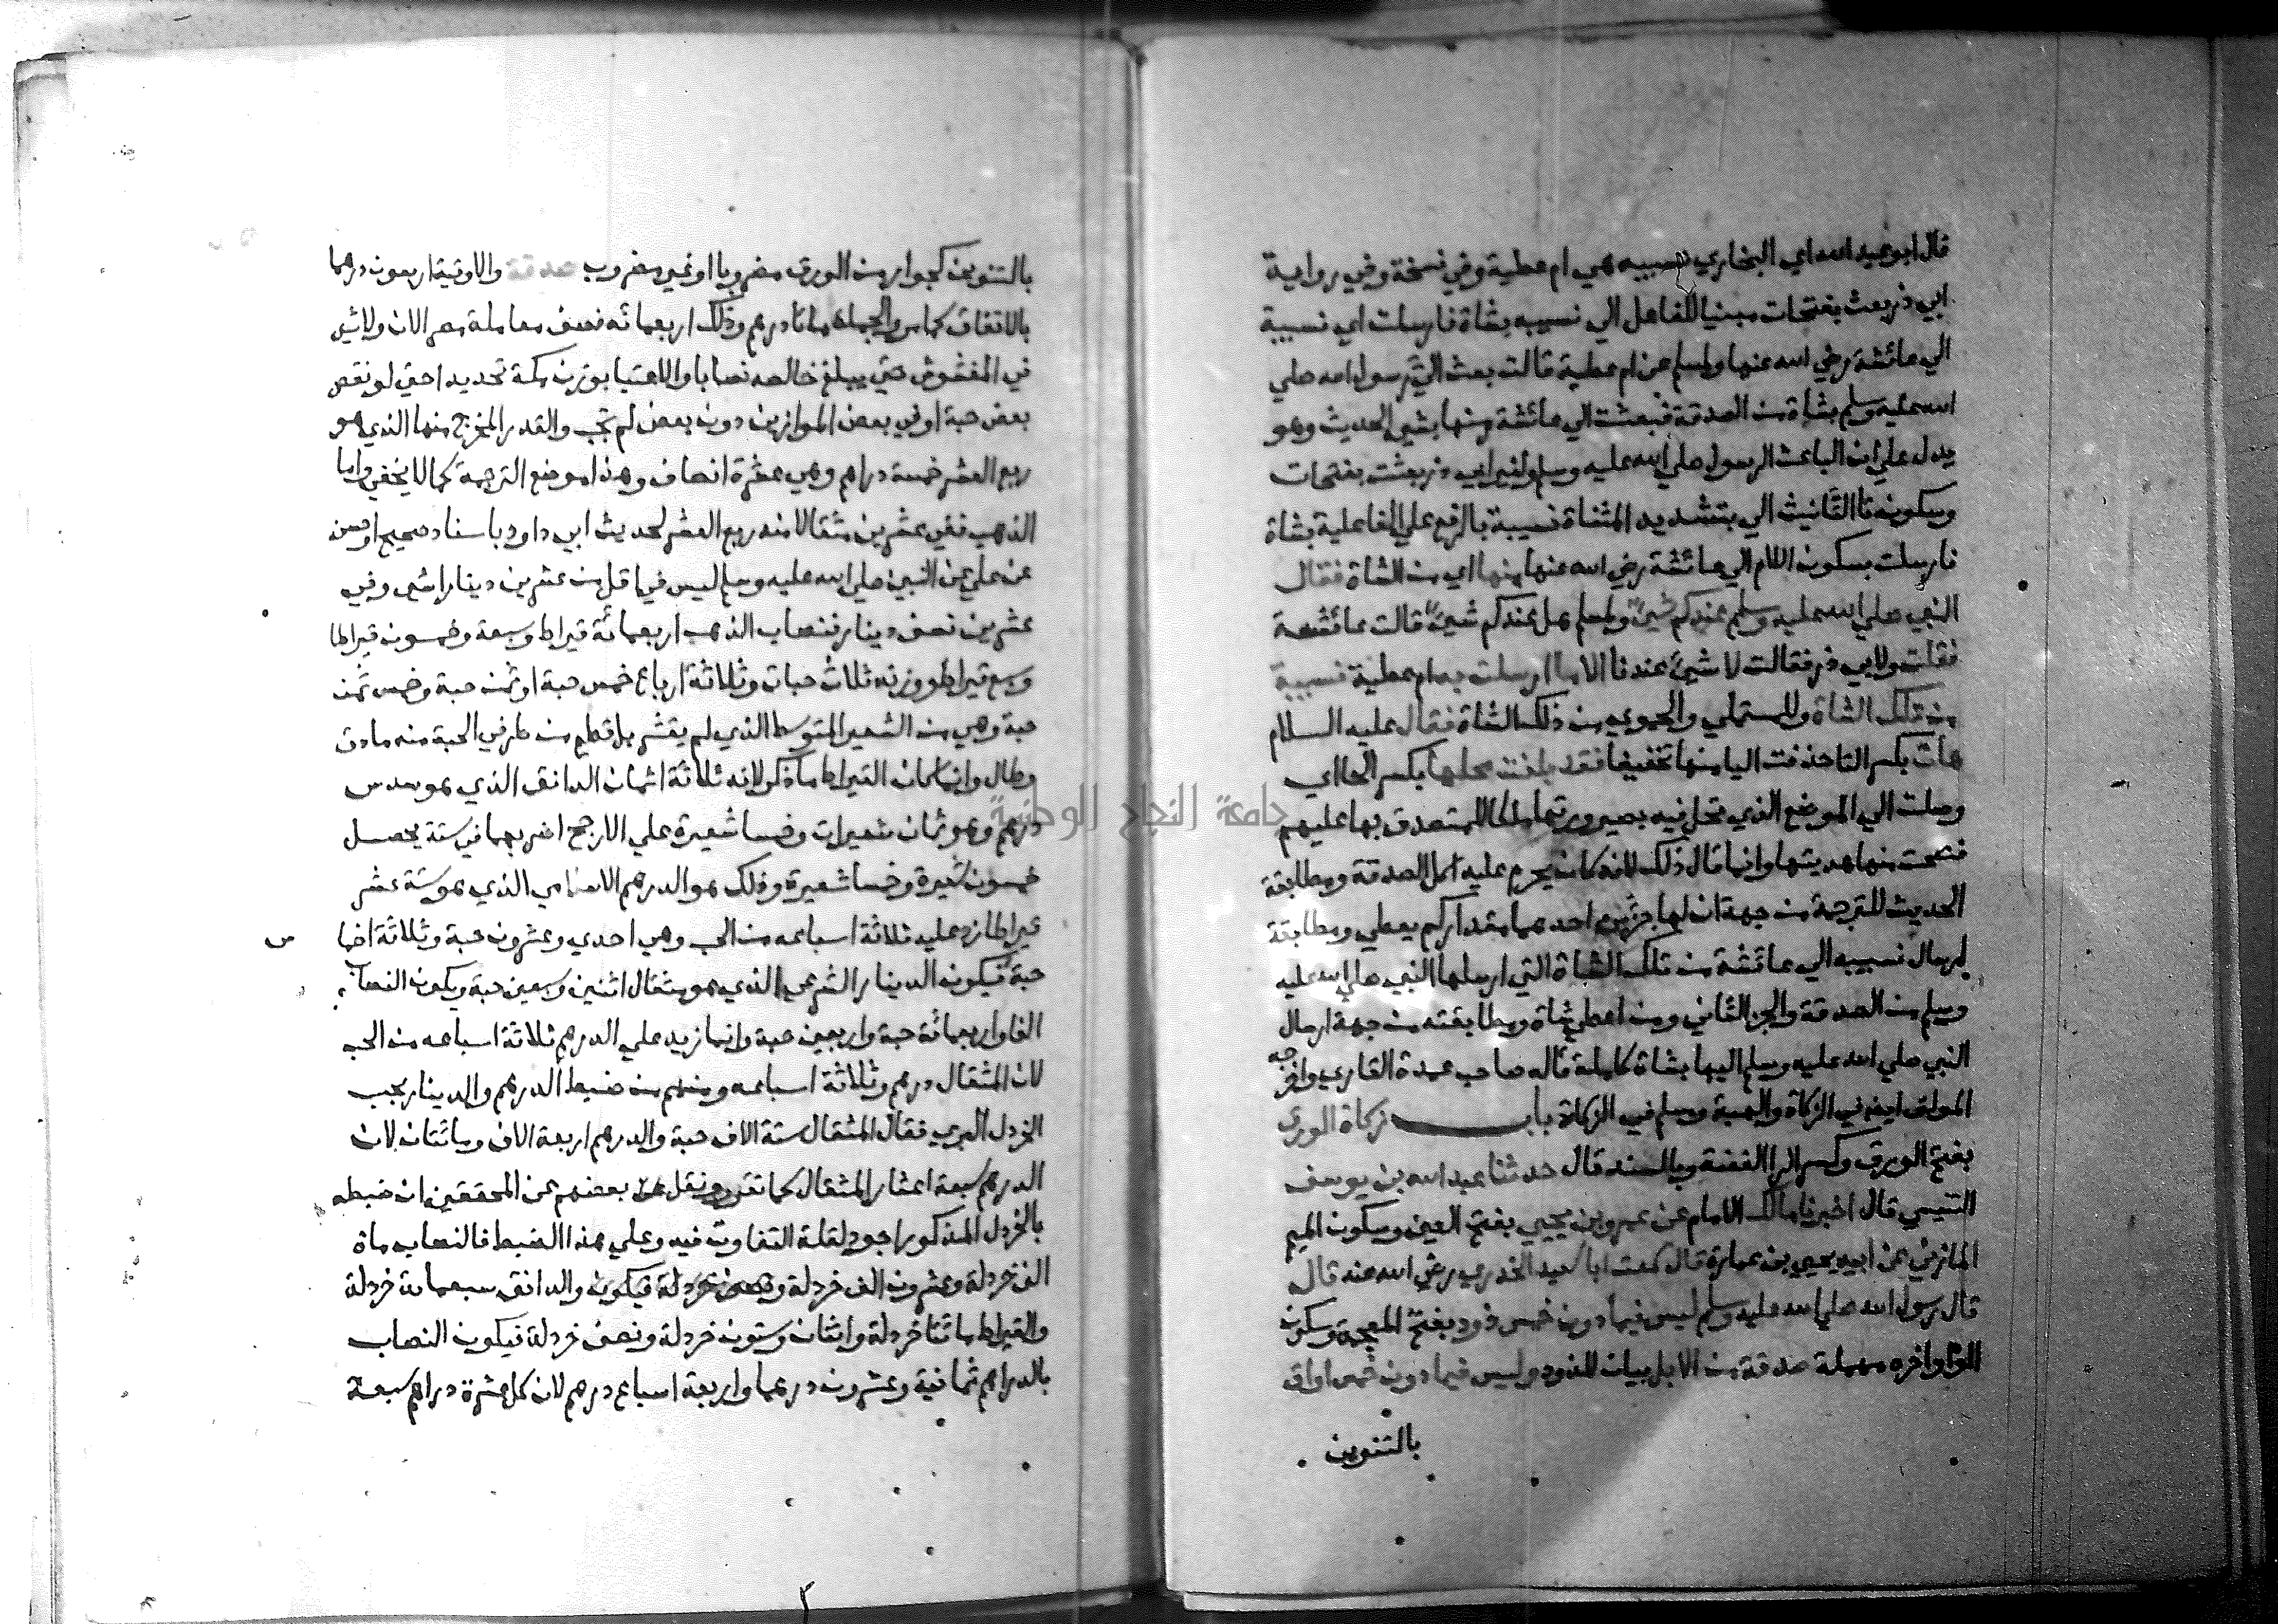 قال ابو عبد الله اي البخاري نسيبه هي ام عطية وفي نسخة وفي رواية
ابي ذر بعث بفتحات مبنيا للفاعل الي نسيبه بشاة فارسلت اي نسيبة
الي عائشة رضي الله عنها ولمسلم عن ام عطية قالت بعث الي رسول الله صلي
الله عليه وسلم بشاة من الصدقة فبعثت الي عائشة منها بشي الحديث وهو
يدل علي ان الباعث الرسول صلي الله عليه وسلم ولغير ابي ذر بعثت بفتحات
وسكون تا التانيث الي بتشديد المثناة نسيبة بالرفع علي الفاعلية بشاة
فارسلت بسكون اللام الي عائشة رضي الله عنها منها اي من الشاة فقال
النبي صلي الله عليه وسلم عندكم شيئ ولمسلم هل عندكم شيئ قالت عائشة
فقلت ولابي ذر فقالت لا شيئ عندنا الا ما ارسلت به ام عطية نسيبة
من تلك الشاة وللمستملي والحموي من ذلك الشاة فقال عليه السلام
هات بكسر التا حذفت اليا منها تخفيفا فقد بلغت محلها بكسر الحا اي
وصلت الي الموضع الذي تحل فيه بصيرورتها ملكا للمتصدق بها عليهم
فصحت منها هديتها وانما قال ذلك لانه كان يحرم عليه اكل الصدقة ومطابقة
الحديث للترجمة من جهة ان لها جزئين احدهما مقدار كم يعطي ومطابقة
ارسال نسيبه الي عائشة من تلك الشاة التي ارسلها النبي صلي الله عليه
وسلم من الصدقة والجز الثاني ومن اعطي شاة ومطابقته من جهة ارسال
النبي صلي الله عليه وسلم اليها بشاة كاملة قاله صاحب عمدة القاري واخرجه
المولف ايضا في الزكاة والهبة ومسلم في الزكاة باب زكاة الورق
بفتح الورق وكسر الرا الفضة وبالسند قال حدثنا عبد الله بن يوسف
التنيسي قال اخبرنا مالك الامام عن عمرو بن يحيي بفتح العين وسكون الميم
المازني عن ابيه يحيي بن عمارة قال سمعت ابا سعيد الخدري رضي الله عنه قال
قال رسول الله صلي الله عليه وسلم ليس فيما دون خمس ذود بفتح المعجمة وسكون
الواو اخره مهملة صدقة من الابل بيان للذود وليس فيما دون خمس اواق
بالتنوين
بالتنوين كجوار من الورق مضروبا او غير مضروب صدقة والاوقية اربعون درهما
بالاتفاق كما مر والجملة مائتا درهم وذلك اربعمائه نصف معاملة مصر الان ولا شي
في المغشوش حتي يبلغ خالصه نصابا والاعتبا بوزن مكة تحديدا حتي لو نقص
بعض حبة او في بعض الموازين دون بعض لم تجب والقدر المخرج منها الذي هو
ربع العشر خمسة دراهم وهي عشرة انصاف وهذا موضع الترجمة كما لا يخفي واما
الذهب ففي عشرين مثقالا منه ربع العشر لحديث ابي داود باسناد صحيح او حسن
عن علي عن النبي صلي الله عليه وسلم ليس في اقل من عشرين دينارا شي وفي
عشرين نصف دينار فنصاب الذهب اربعمائة قيراط وسبعة وخمسون قيراطا
وسبع قيراط ووزنه ثلاث حبات وثلاثة ارباع خمس حبة او ثمن حبة وخمس ثمن
حبة وهي من الشعير المتوسط الذي لم يقشر بل قطع من طرفي الحبة منه ما دق
وطال وانما كان القيراط ما ذكر لانه ثلاثة اثمان الدانق الذي هو سدس
درهم وهو ثمان شعيرات وخمسا شعيرة علي الارجح اضربهما في ستة يحصل
خمسون شعيرة وخمسا شعيرة وذلك هو الدرهم الاسلامي الذي هو ستة عشر
قيراطا زد عليه ثلاثة اسباعه من الحب وهي احدي وعشرون حبة وثلاثة اخما
س
حبة فيكون الدينار الشرعي الذي هو مثقال اثنين وسبعين حبة ويكون النصاب
الفا واربعمائة حبة واربعين حبة وانما زيد علي الدرهم ثلاثة اسباعه من الحب
لان المثقال درهم وثلاثة اسباعه ومنهم من ضبط الدرهم والدينار بحب
الخردل البري فقال المثقال ستة الاف حبة والدرهم اربعة الاف ومائتان لان
الدرهم سبعة اعشار المثقال كما تقرر ونقل عن بعضهم عن المحققين ان ضبطه
بالخردل المذكور اجود لقلة التفاوت فيه وعلي هذا الضبط فالنصاب ماة
الف خردلة وعشرون الف خردلة والدانق سبعماة خردلة
والقيراط مائتا خردلة واثنان وستون خردلة ونصف خردلة فيكون النصاب
بالدراهم ثمانية وعشرون درهما واربعة اسباع درهم لان كل عشرة دراهم سبعة
جامعة النجاح الوطنية